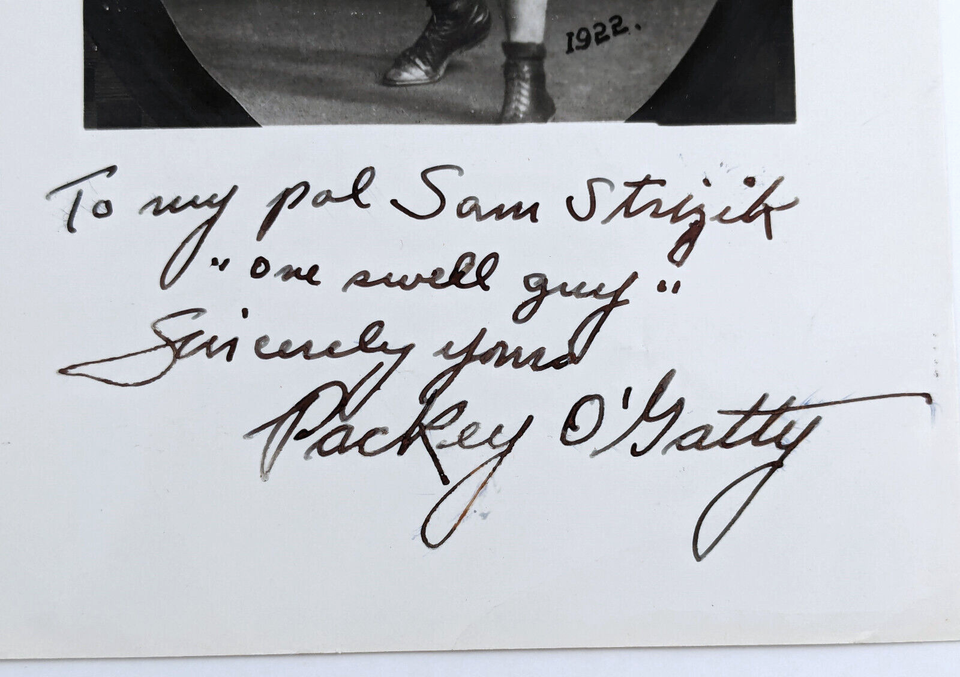 1922.
To my pal Sam Strizik
"one swell guy"
Sincerely yours
Packey O'Gatty